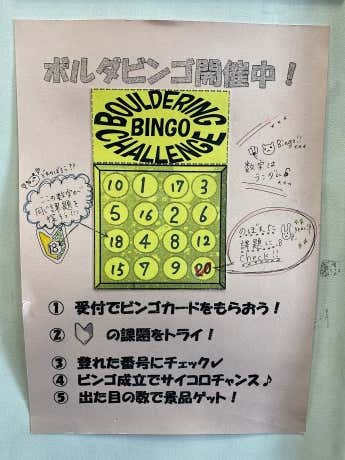 ボルダビンゴ開催中！
BOULDERING
BINGO
CHALLENGE
10 1 17 3
5 16 2 6
18 4 8 12
15 7 9 20
この数字が
同じ課題を
18
Bingo!!
数字は
ランダム
のぼれたら
課題に
Check!!
① 受付でビンゴカードをもらおう！
② の課題をトライ！
③ 登れた番号にチェック✓
④ ビンゴ成立でサイコロチャンス♪
⑤ 出た目の数で景品ゲット！